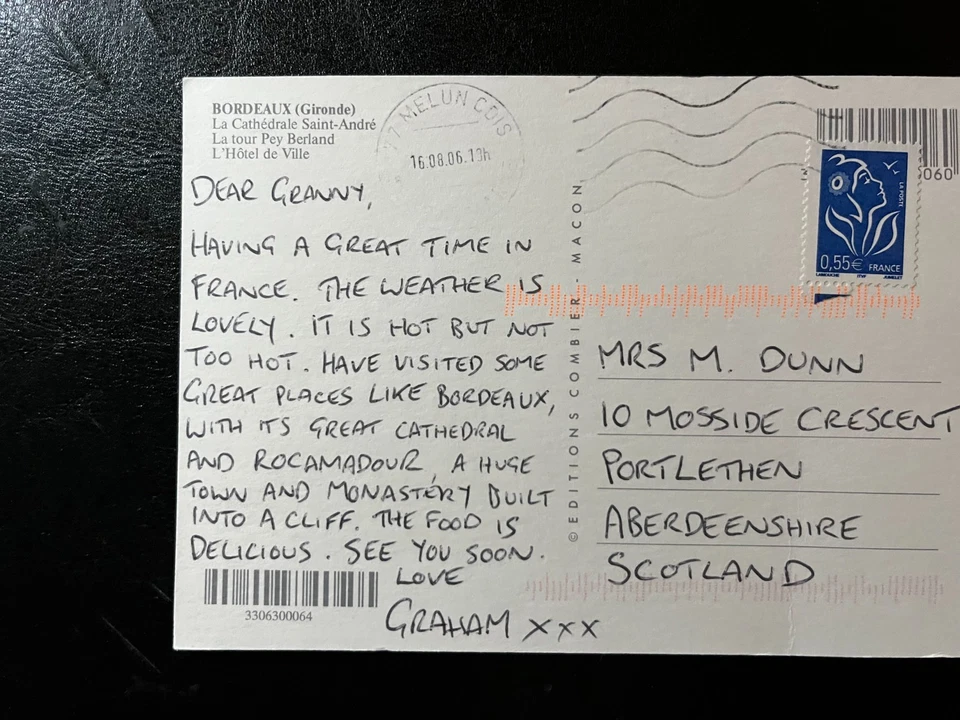 BORDEAUX (Gironde)
La Cathédrale Saint-André
La tour Pey Berland
L'Hôtel de Ville
77 MELUN CDIS
16.08.06.
DEAR GRANNY,
HAVING A GREAT TIME IN
FRANCE. THE WEATHER IS
LOVELY. IT IS HOT BUT NOT
TOO HOT. HAVE VISITED SOME
GREAT PLACES LIKE BORDEAUX,
WITH ITS GREAT CATHEDRAL
AND ROCAMADOUR, A HUGE
TOWN AND MONASTERY BUILT
INTO A CLIFF. THE FOOD IS
DELICIOUS. SEE YOU SOON.
LOVE
GRAHAM XXX
3306300064
© EDITIONS COMBIER MACON
060
LA POSTE
0,55€ FRANCE
LAMOUCHE ITVF JUMELET
MRS M. DUNN
10 MOSSIDE CRESCENT
PORTLETHEN
ABERDEENSHIRE
SCOTLAND